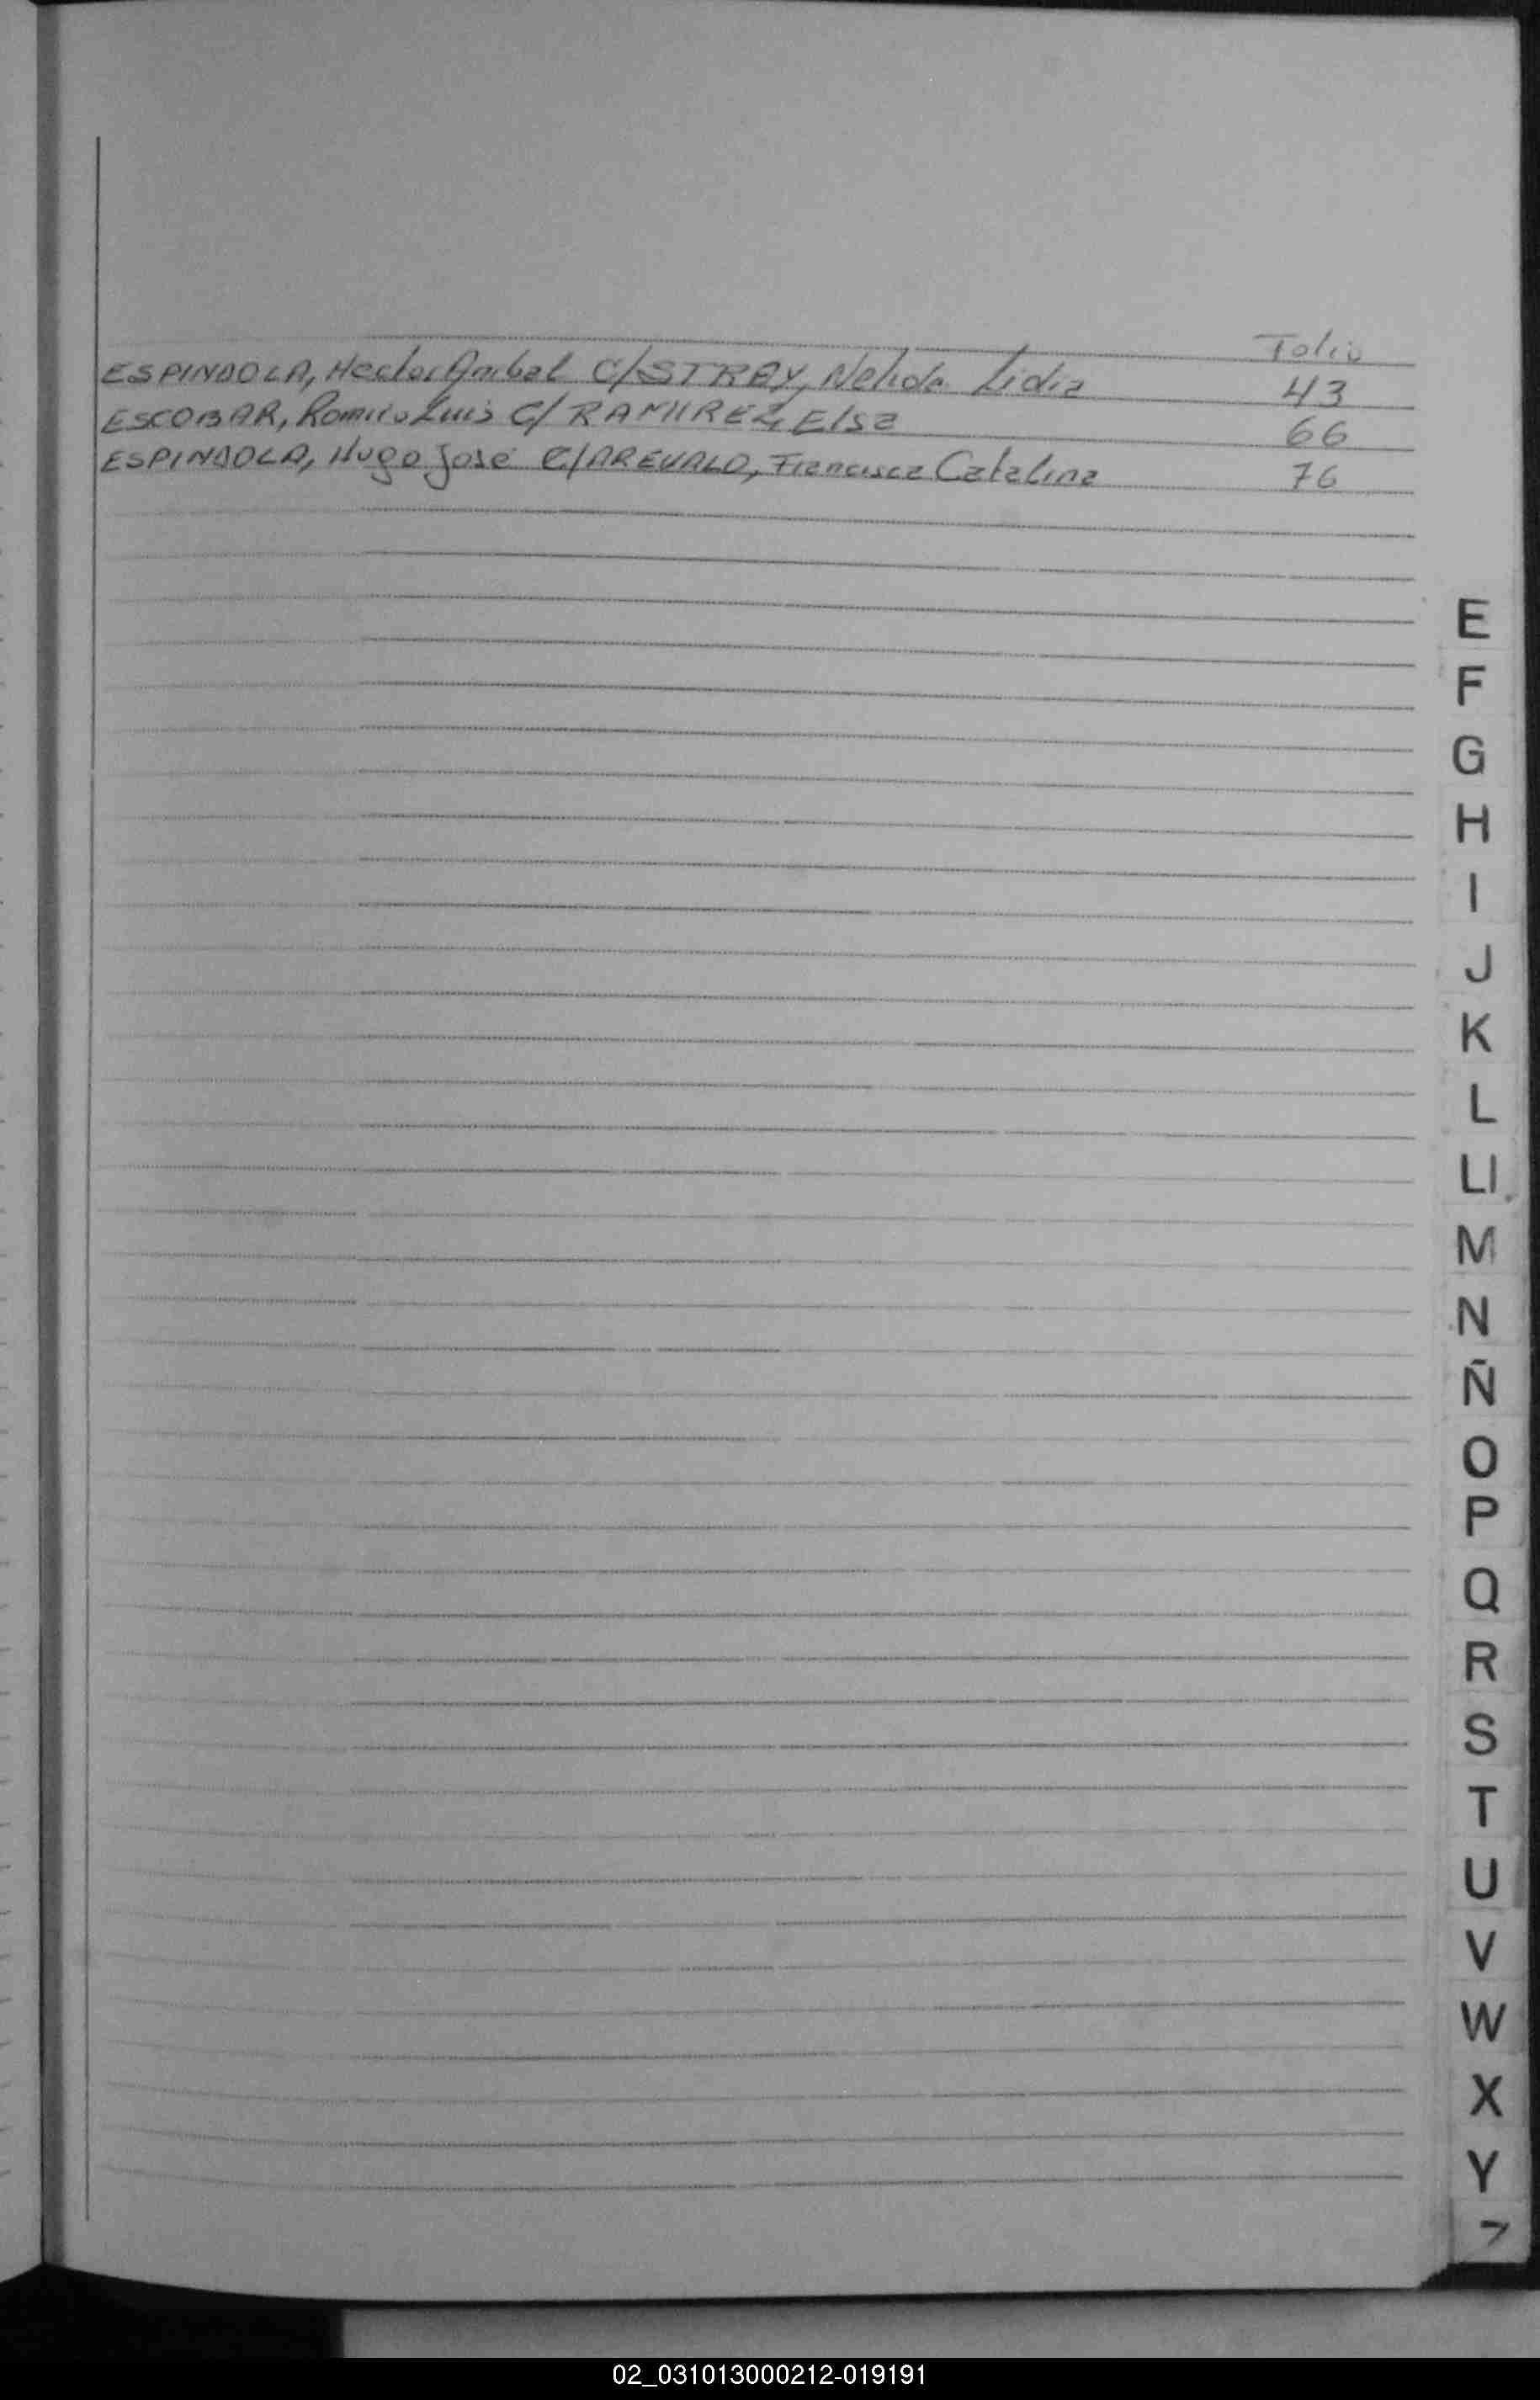 Folio
ESPINDOLA, Hector Anibal C/STRAY, Nelida Lidia 43
ESCOBAR, Romulo Luis C/ RAMIREZ, Elsa 66
ESPINDOLA, Hugo José C/AREVALO, Francisca Catalina 76
E
F
G
H
I
J
K
L
Ll
M
N
Ñ
O
P
Q
R
S
T
U
V
W
X
Y
02_031013000212-019191